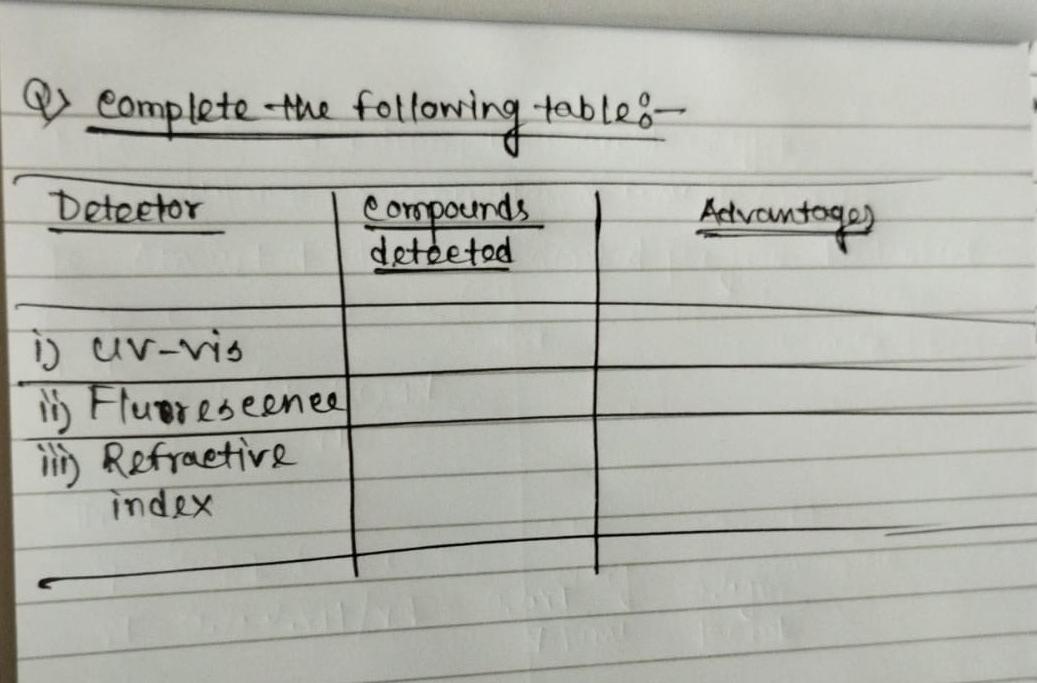 Q) Complete the following table:-
Detector Compounds Advantages
detected
i) UV-vis
ii) Fluorescence
iii) Refractive
index